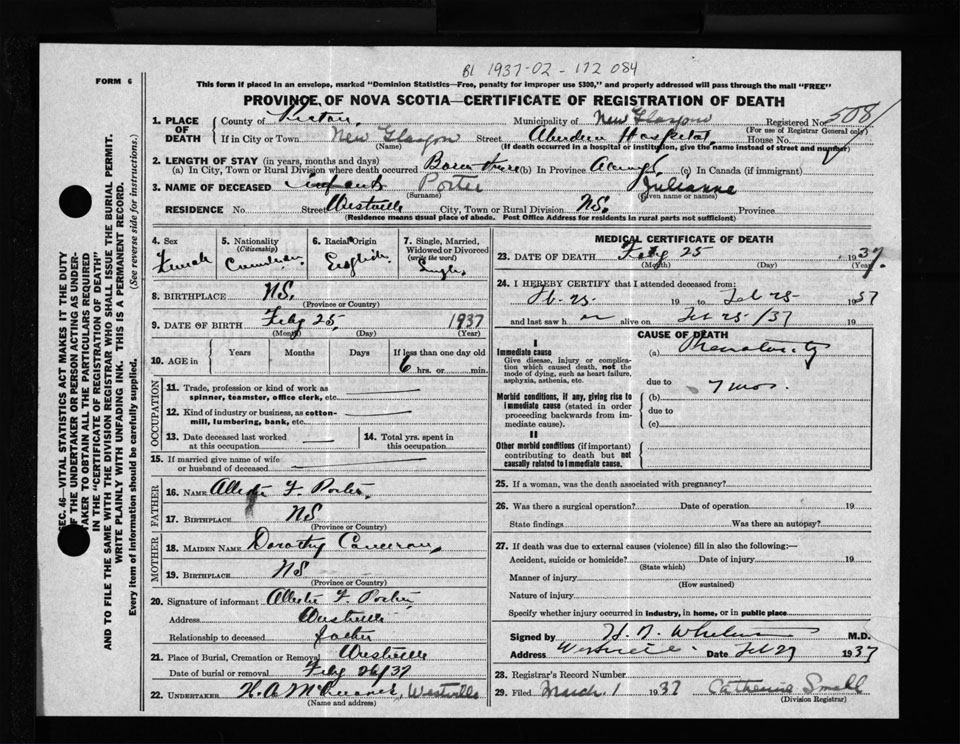 Bl 1937-02-172 084
FORM 6
This form if placed in an envelope, marked "Dominion Statistics—Free, penalty for improper use $300," and properly addressed will pass through the mail "FREE"
PROVINCE OF NOVA SCOTIA—CERTIFICATE OF REGISTRATION OF DEATH
1. PLACE OF DEATH County of Pictou Municipality of New Glasgow Registered No. 508
(For use of Registrar General only)
If in City or Town New Glasgow Street Aberdeen Hospital House No.
(Name) (If death occurred in a hospital or institution, give the name instead of street and number)
2. LENGTH OF STAY (in years, months and days)
(a) In City, Town or Rural Division where death occurred Born there (b) In Province (c) In Canada (if immigrant)
3. NAME OF DECEASED infant Porter Julianne
(Surname) (Given name or names)
RESIDENCE No. Street Westville City, Town or Rural Division N.S. Province
(Residence means usual place of abode. Post Office Address for residents in rural parts not sufficient)
4. Sex Female
5. Nationality (Citizenship) Canadian
6. Racial Origin English
7. Single, Married, Widowed or Divorced (write the word) Single
8. BIRTHPLACE N.S.
(Province or Country)
9. DATE OF BIRTH Feby 25 1937
(Month) (Day) (Year)
10. AGE in Years Months Days If less than one day old
6 hrs. or min.
OCCUPATION
11. Trade, profession or kind of work as spinner, teamster, office clerk, etc.
12. Kind of industry or business, as cotton-mill, lumbering, bank, etc.
13. Date deceased last worked at this occupation
14. Total yrs. spent in this occupation
15. If married give name of wife or husband of deceased
FATHER
16. NAME F. Porter
17. BIRTHPLACE NS
(Province or Country)
MOTHER
18. MAIDEN NAME Dorothy Cameron
19. BIRTHPLACE NS
(Province or Country)
20. Signature of informant F. Porter
Address Westville
Relationship to deceased father
21. Place of Burial, Cremation or Removal Westville
Date of burial or removal Feby 26/37
22. UNDERTAKER H. A. Westville
(Name and address)
MEDICAL CERTIFICATE OF DEATH
23. DATE OF DEATH Feby 25 1937
(Month) (Day) (Year)
24. I HEREBY CERTIFY that I attended deceased from:
Feb. 25 19 to Feb 25 1937
and last saw h er alive on Feb 25/37 19
CAUSE OF DEATH
I
Immediate cause (a) Prematurity
Give disease, injury or complication which caused death, not the mode of dying, such as heart failure, asphyxia, asthenia, etc.
due to 7 mos.
Morbid conditions, if any, giving rise to immediate cause (stated in order proceeding backwards from immediate cause).
(b)
due to
(c)
II
Other morbid conditions (if important) contributing to death but not causally related to immediate cause.
25. If a woman, was the death associated with pregnancy?
26. Was there a surgical operation? Date of operation 19
State findings Was there an autopsy?
27. If death was due to external causes (violence) fill in also the following:—
Accident, suicide or homicide? Date of injury 19
(State which)
Manner of injury
(How sustained)
Nature of injury
Specify whether injury occurred in industry, in home, or in public place
Signed by M.D.
Address Westville Date Feb 27 1937
28. Registrar's Record Number
29. Filed March 1 1937 Catherine Small
(Division Registrar)
SEC. 46—VITAL STATISTICS ACT MAKES IT THE DUTY
OF THE UNDERTAKER OR PERSON ACTING AS UNDER-
TAKER TO OBTAIN ALL THE PARTICULARS REQUIRED
IN THE "CERTIFICATE OF REGISTRATION OF DEATH"
AND TO FILE THE SAME WITH THE DIVISION REGISTRAR WHO SHALL ISSUE THE BURIAL PERMIT.
WRITE PLAINLY WITH UNFADING INK. THIS IS A PERMANENT RECORD.
Every item of information should be carefully supplied. (See reverse side for instructions.)